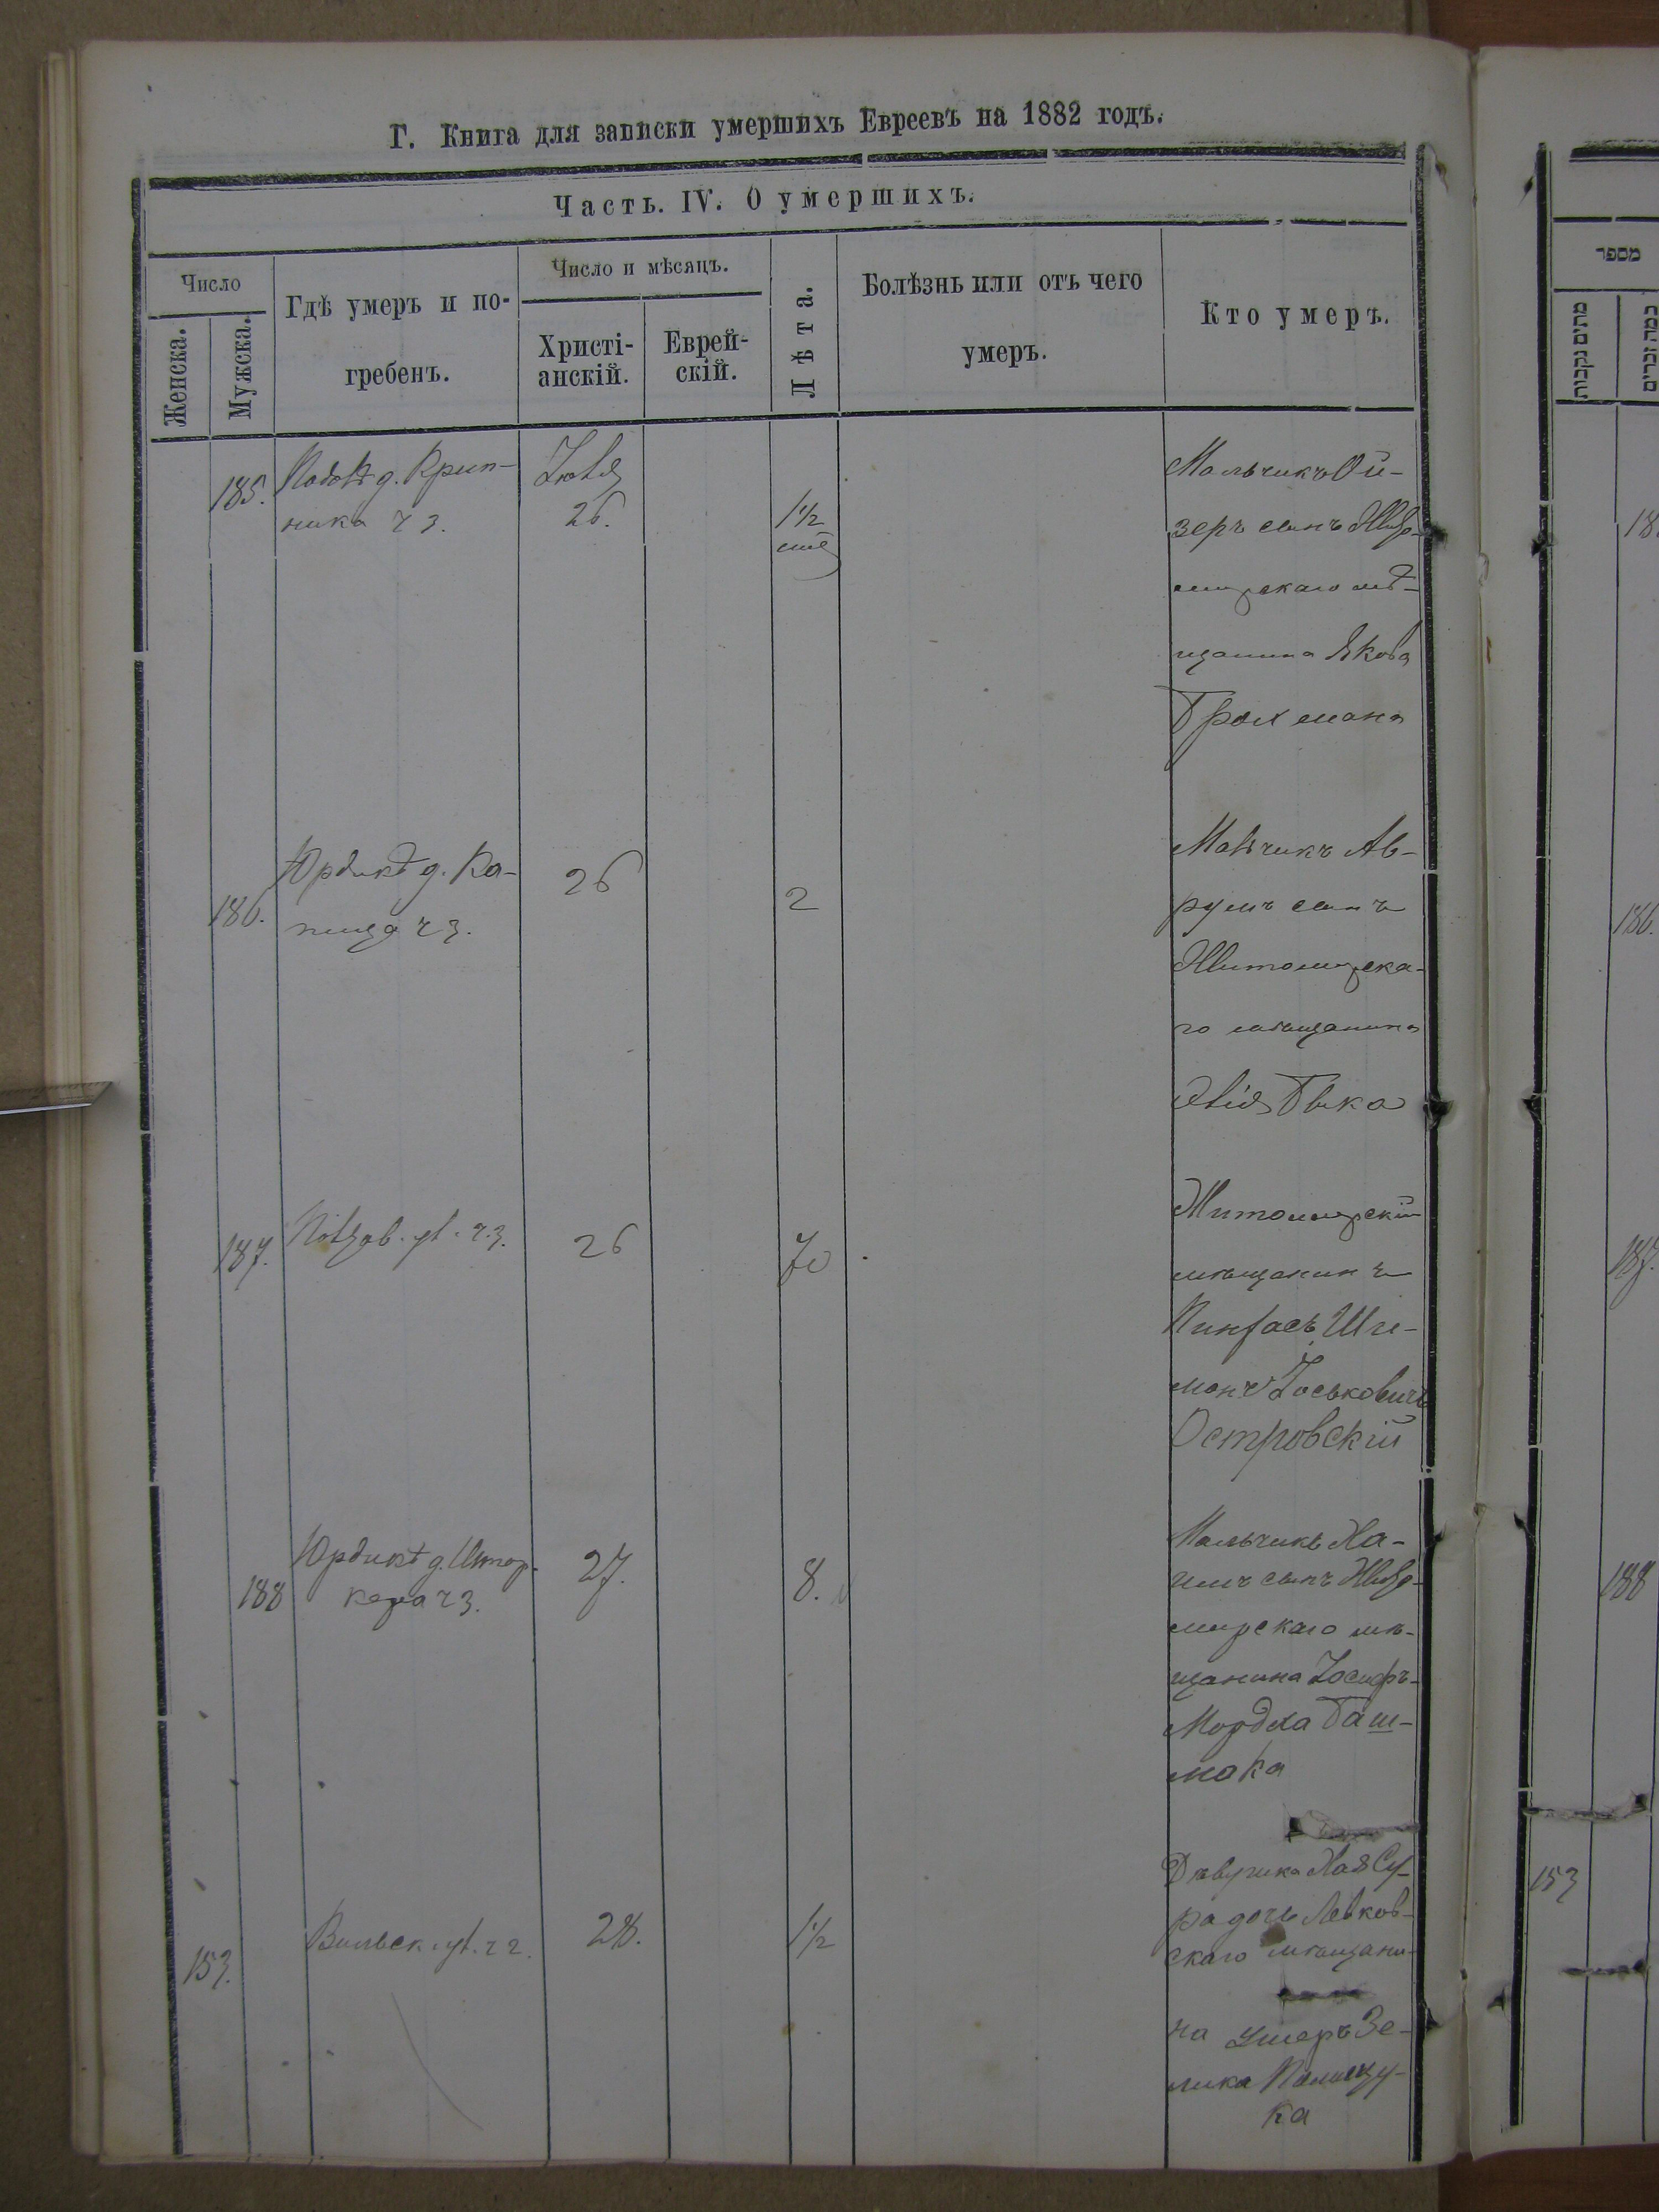 Г. Книга для записки умершихъ Евреевъ на 1882 годъ.
Часть. IV. О умершихъ.
Число
Женска.
Мужска.
Гдѣ умеръ и по-
гребенъ.
Число и мѣсяцъ.
Христі-
анскій.
Еврей-
скій.
Лѣта.
Болѣзнь или отъ чего
умеръ.
Кто умеръ.
185.
д. Крип-
ника ч 3.
Іюля
26.
1 1/2
Мальчикъ Ой-
зеръ сынъ Жито-
мирскаго мѣ-
щанина Якова
Трахмана
186.
Юрдикѣ д. Ка-
пица ч 3.
26
2
Мальчикъ Ав-
румъ сынъ
Житомирска-
го мѣщанина
Быка
187.
ул. ч. 3.
26
70
Житомирскій
мѣщанинъ
Пинхасъ Ши-
монъ Іоськовичъ
Островскій
188
Юрдикѣ д. Штар-
кера ч 3.
27.
8.
Мальчикъ Ха-
имъ сынъ Жито-
мирскаго мѣ-
щанина Іосифъ-
Мордха Баш-
мака
153.
Вильск. ул. ч 2.
28.
1 1/2
Дѣвушка Хая Су-
ра дочь Левков-
скаго мѣщани-
на Умеръ Зе-
лика Полищу-
ка
מספר
מתים נקבות
כמה זכרים
18
186.
187.
188
153